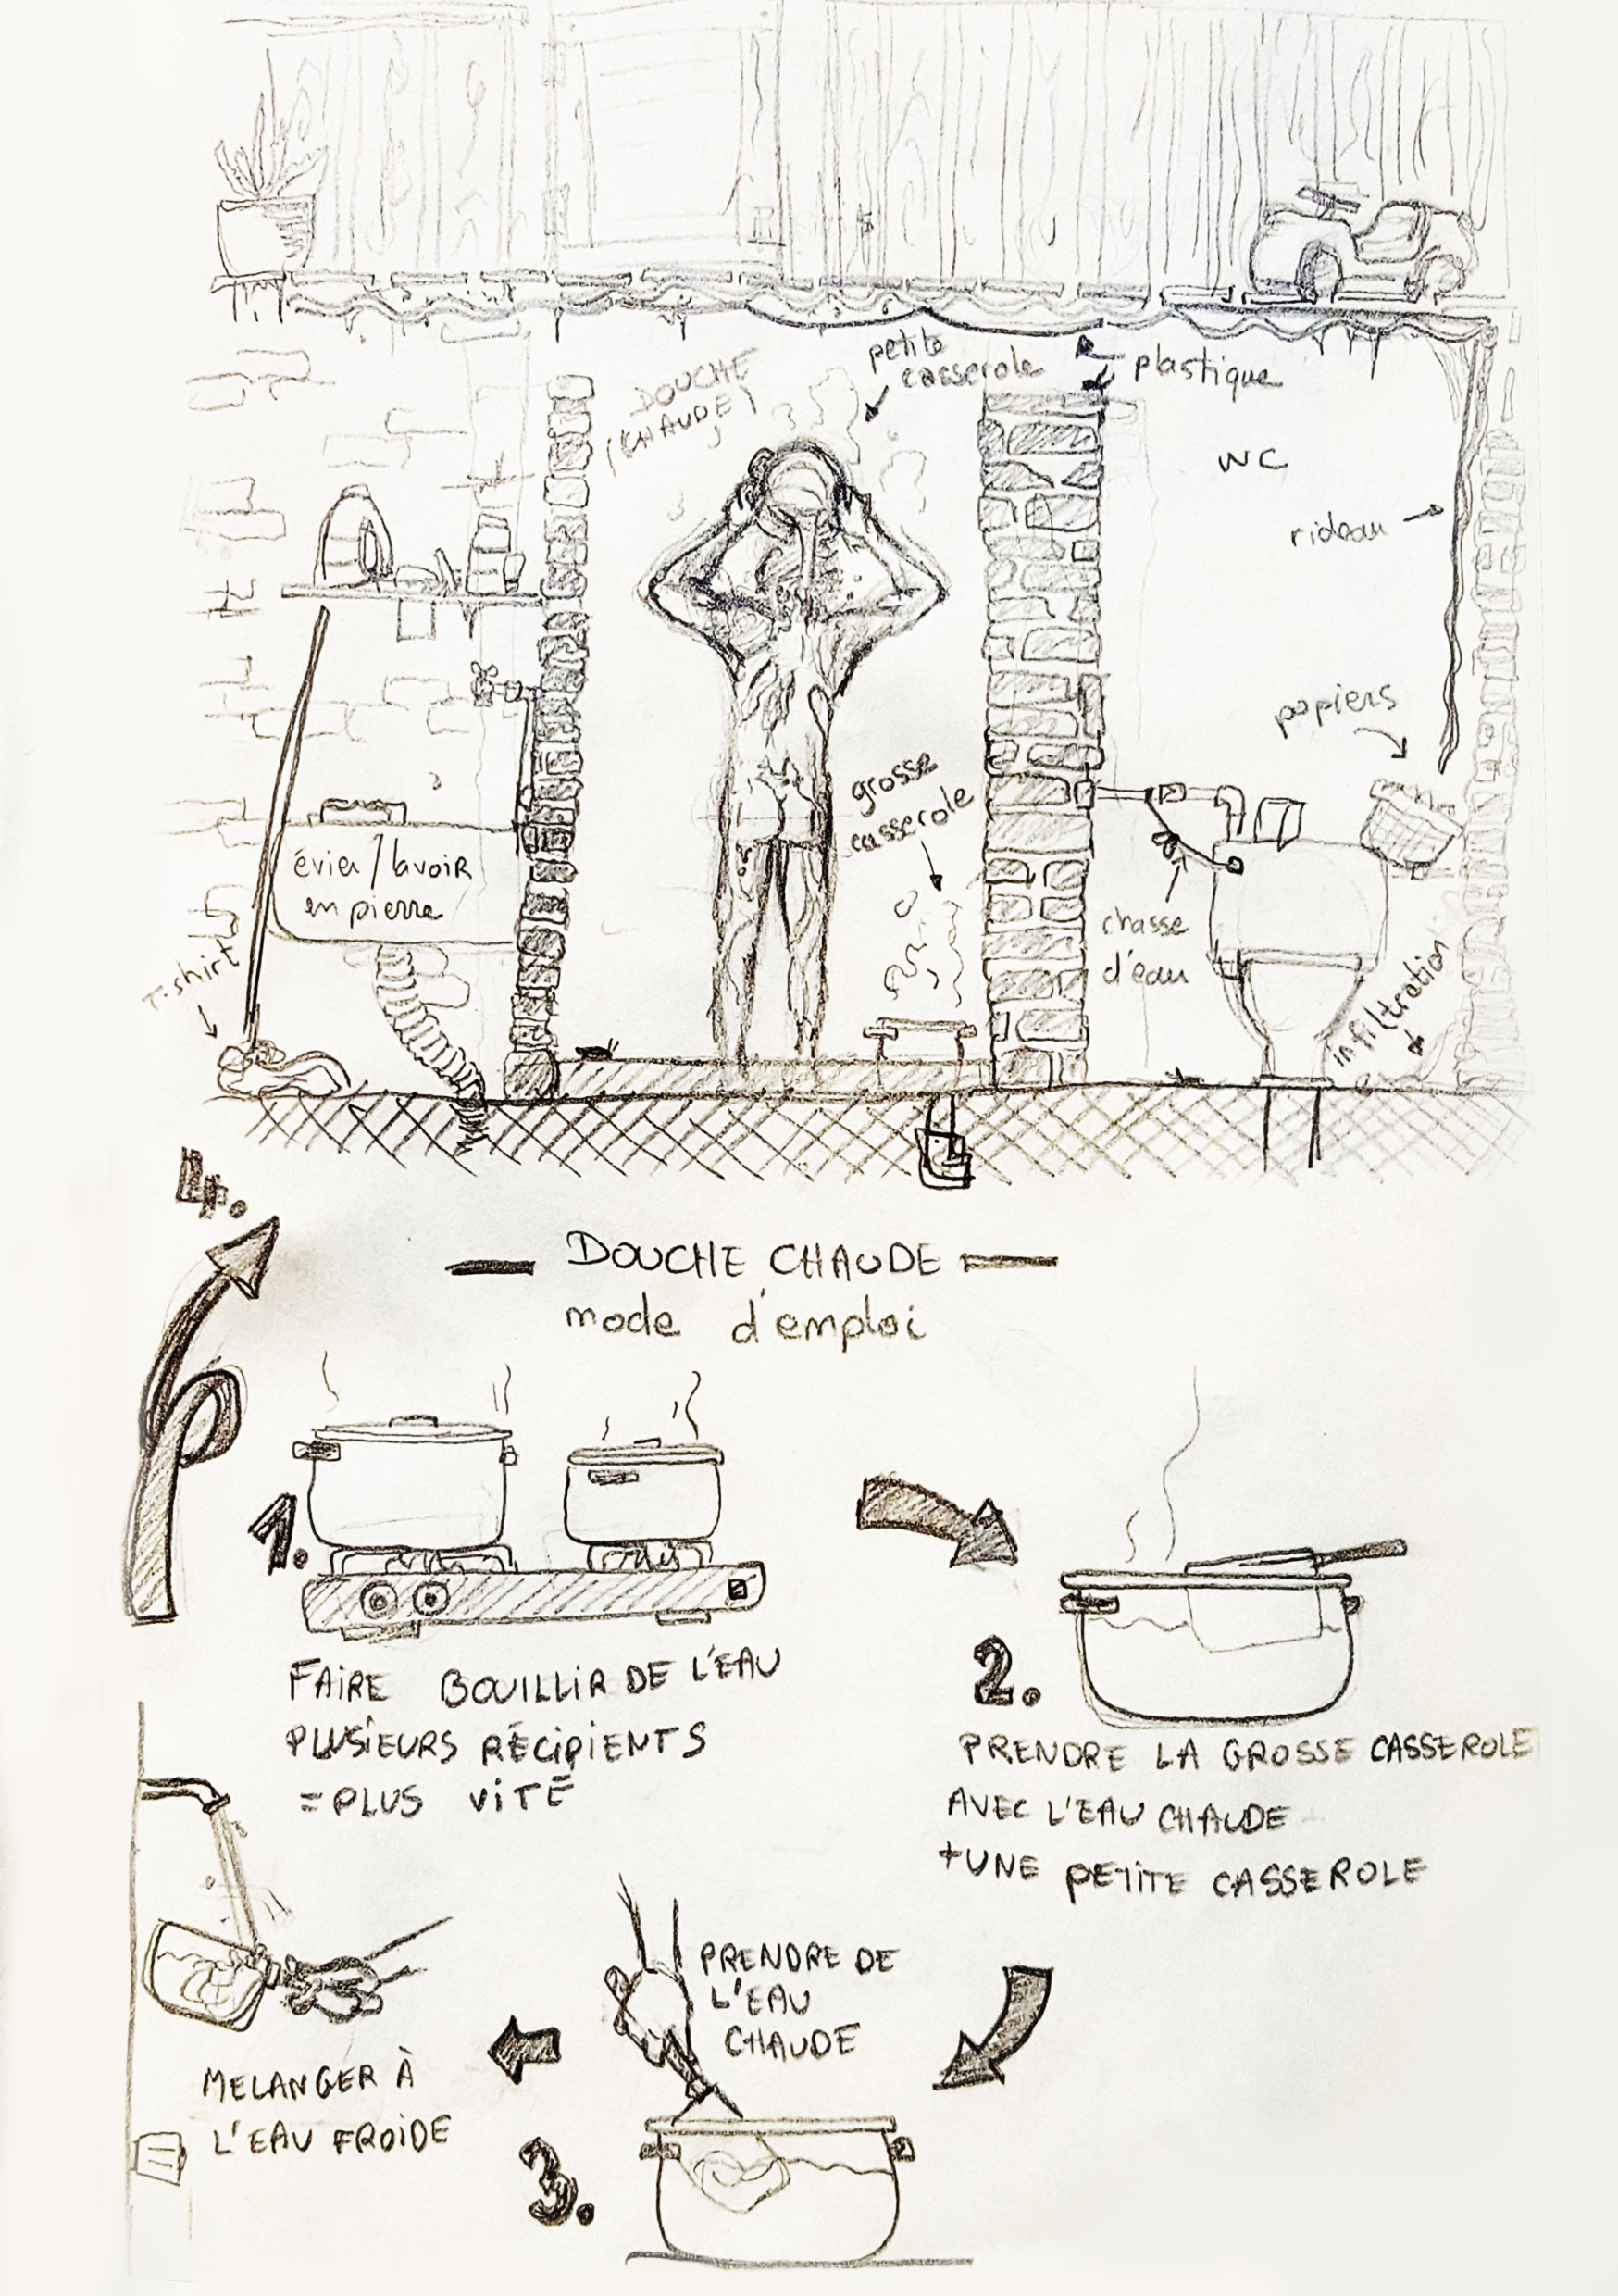 DOUCHE
(CHAUDE)
petite
casserole
plastique
WC
rideau
papiers
grosse
casserole
évier / lavoir
en pierre
chasse
d'eau
T-shirt
infiltration
4.
DOUCHE CHAUDE
mode d'emploi
1.
FAIRE BOUILLIR DE L'EAU
PLUSIEURS RÉCIPIENTS
= PLUS VITE
2.
PRENDRE LA GROSSE CASSEROLE
AVEC L'EAU CHAUDE
+ UNE PETITE CASSEROLE
PRENDRE DE
L'EAU
CHAUDE
3.
MELANGER À
L'EAU FROIDE